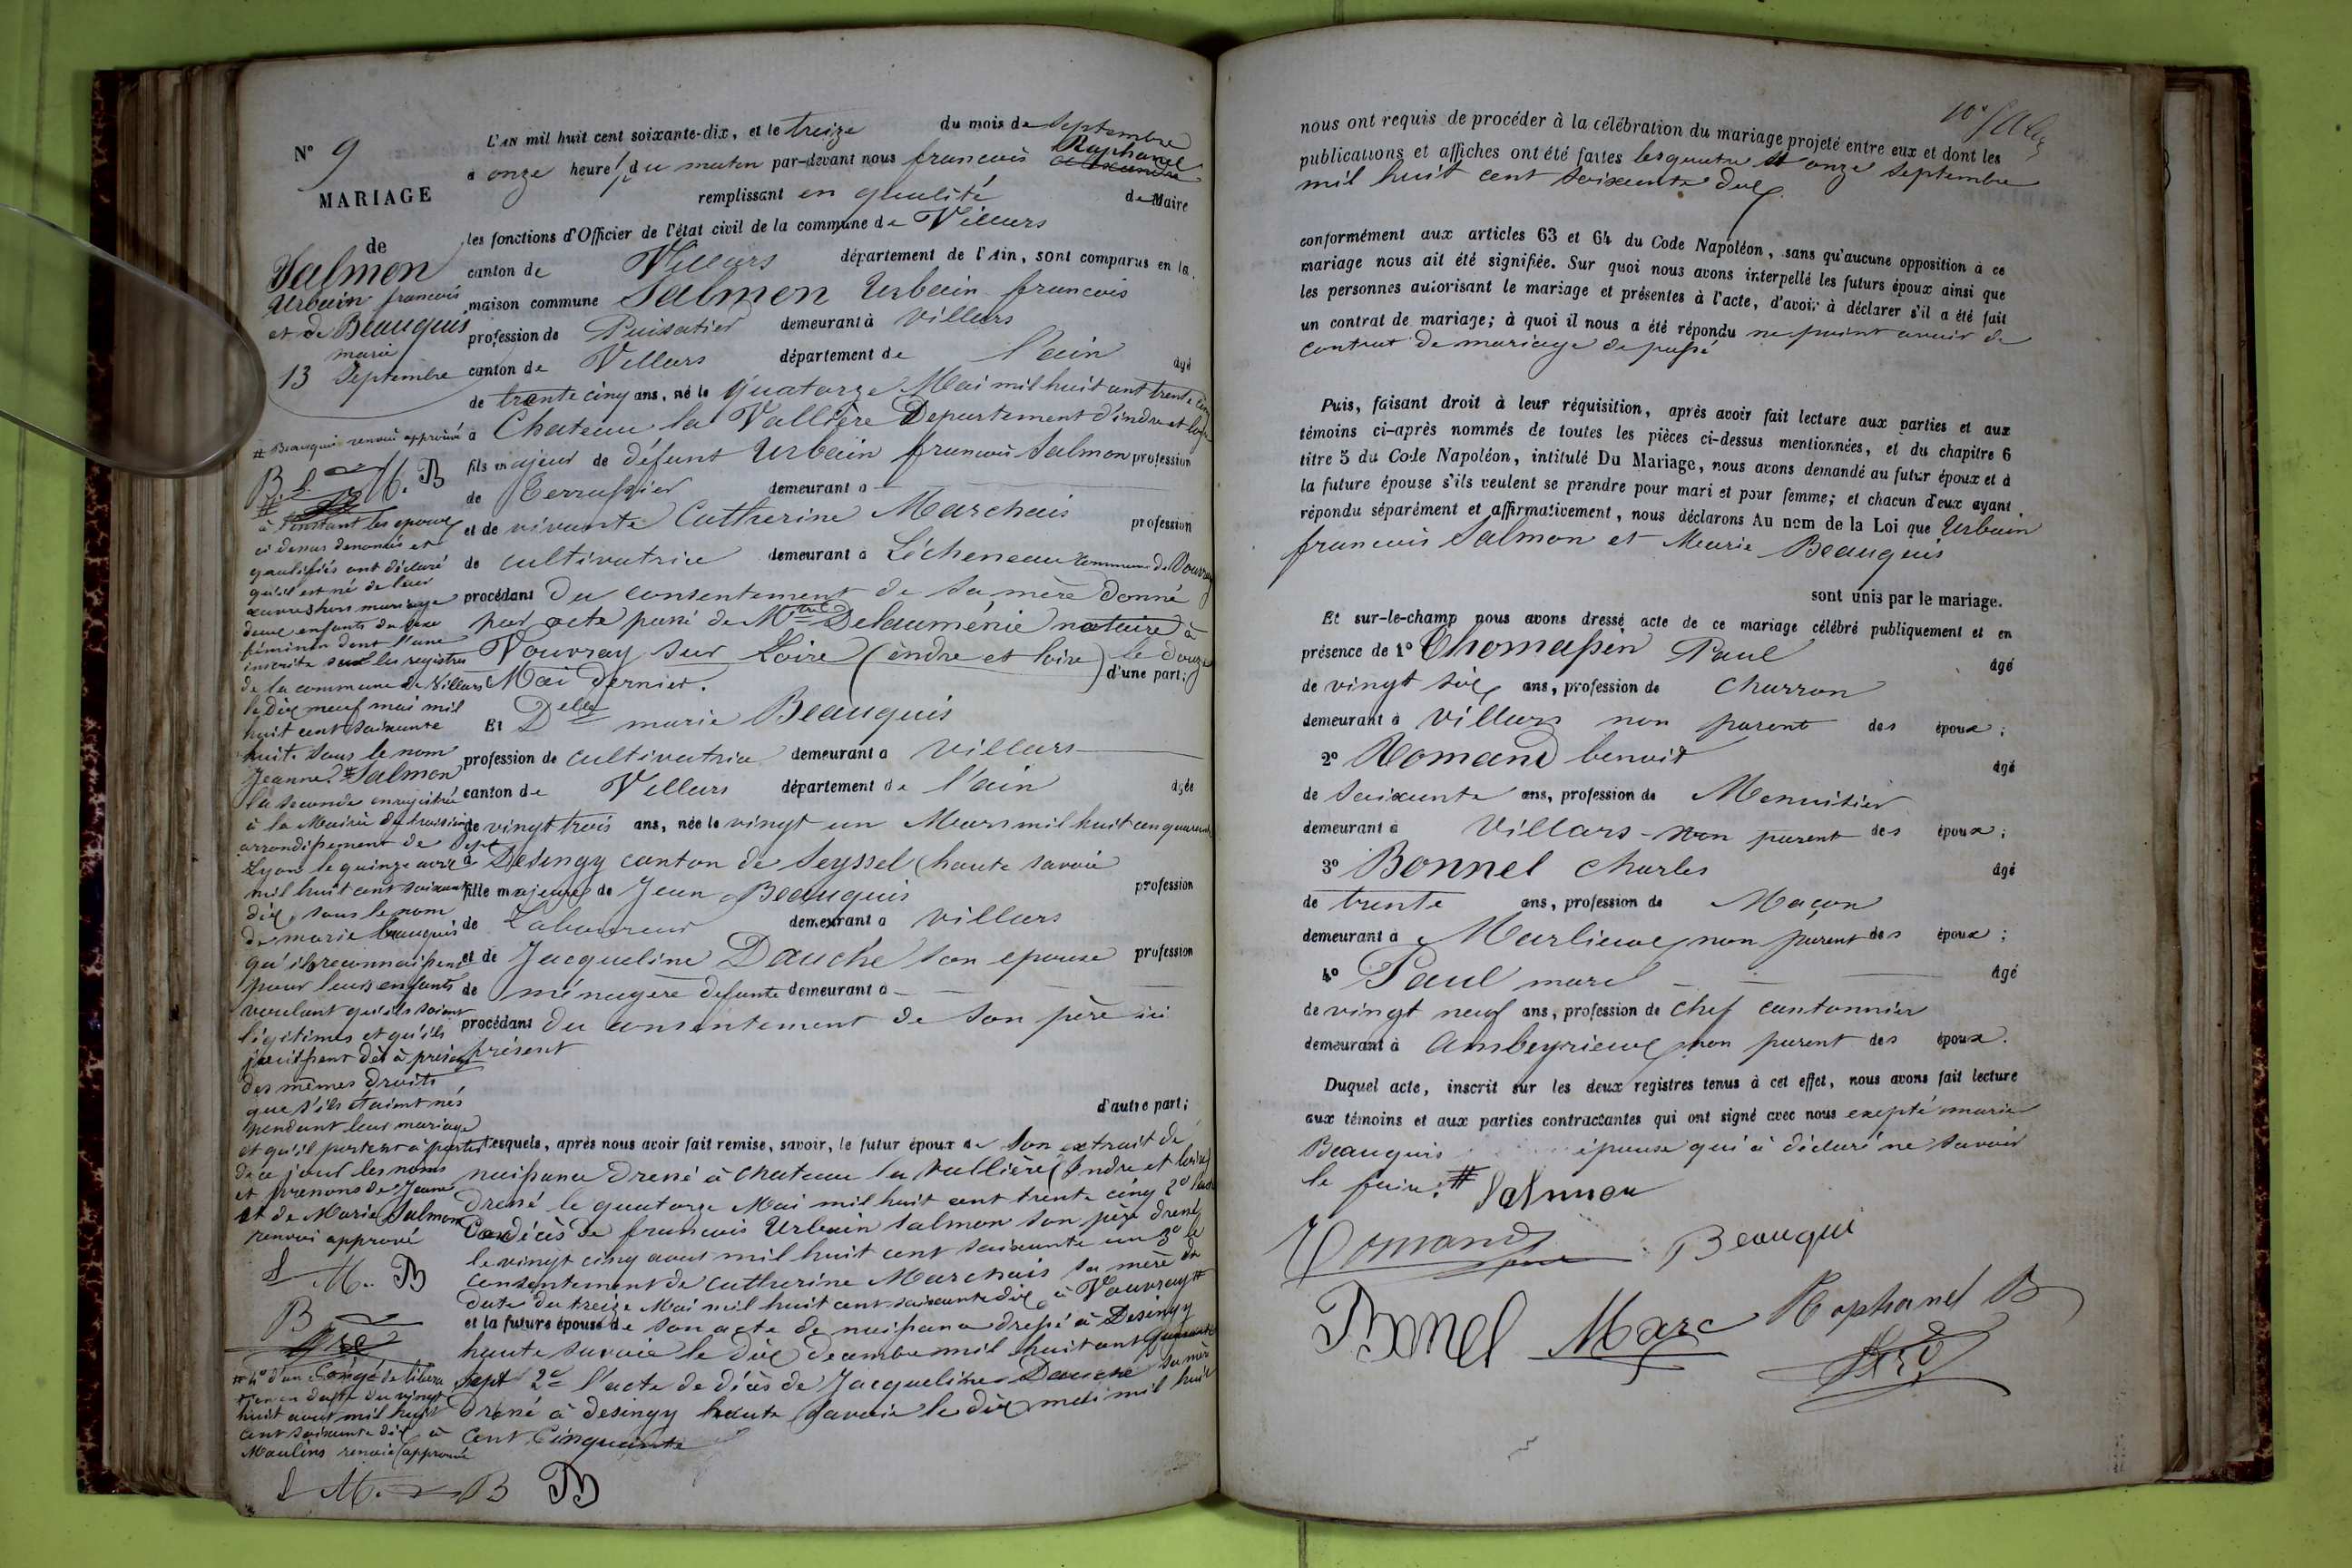 N° 9
MARIAGE
de
Salmon
Urbain francois
et de Beauquis
marie
13 Septembre
# Beauquis renvoi approuvé
B. S. M. B
#
à l'instant les epoux
ci dessus denomés et
qualifiés ont déclaré
qu'il est né de leur
œuvres hors mariage
deux enfants du sexe
féminin dont l'une
inscrite sur les registres
de la commune de Villars
le Dix neuf mai mil
huit cent soixante
huit sous le nom
Jeanne # Salmon
la seconde enregistrée
à la Mairie du troisième
arrondissement de
Lyon le quinze avril
mil huit cent soixante
dix, sous le nom
de marie beauquis
qu'ils reconnaissent
pour leurs enfants
voulant qu'ils soient
légitimes et qu'ils
jouissent dès à présent
des mêmes droits
que s'ils étaient nés
pendant leur mariage
et qu'il portent à partir
de ce jour les noms
et prenons de Jeanne
et de Marie Salmon
renvoi approuvé
S M. B
B
# 4° d'un Congé de libera
tion en date du vingt
huit aout mil huit
cent soixante dix à
Moulins renvoi approuvé
S M. B B
L'AN mil huit cent soixante-dix, et le treize du mois de Septembre
à onze heures du matin par-devant nous francois Raphanel
remplissant en qualité de Maire
les fonctions d'Officier de l'état civil de la commune de Villars
canton de Villars département de l'Ain, sont comparus en la
maison commune Salmon Urbain francois
profession de Puisatier demeurant à Villars
canton de Villars département de l'ain âgé
de trente cinq ans, né le quatorze Mai mil huit cent trente cinq
à Chateau la Vallière Departement d'indre et loire
fils majeur de défunt Urbain francois Salmon profession
de Terrassier demeurant à
et de vivante Catherine Marchais profession
de cultivatrice demeurant à L'écheneau commune de Vouvray
procédant du consentement de sa mère donné
par acte passé de Mtre Delauménie notaire à
Vouvray sur Loire (indre et loire) le douze
Mai dernier. d'une part;
Et Delle marie Beauquis
profession de cultivatrice demeurant à villars
canton de Villars département de l'ain âgée
de vingt trois ans, née le vingt un Mars mil huit cent quarante
sept à Desingy canton de Seyssel (haute savoie
fille majeure de Jean Beauquis profession
de Laboureur demeurant à villars
et de Jacqueline Dauché son epouse profession
de ménagère défunte demeurant à
procédant du consentement de son père ici
présent
d'autre part;
Lesquels, après nous avoir fait remise, savoir, le futur époux de son extrait de
naissance dressé à chateau la vallière (Indre et loire)
dressé le quatorze Mai mil huit cent trente cinq 2° l'acte
de décès de francois Urbain Salmon son père dressé
le vingt cinq aout mil huit cent soixante un 3° le
consentement de catherine Marchais sa mère en
date du treize Mai mil huit cent soixante dix à Vouvray #
et la future épouse de son acte de naissance dressé à Desingy
haute savoie le dix decembre mil huit cent quarante
sept 2° l'acte de décès de Jacqueline Dauché sa mère
dressé à desingy haute Savoie le dix mai mil huit
cent Cinquante
nous ont requis de procéder à la célébration du mariage projeté entre eux et dont les
publications et affiches ont été faites les quatre et onze septembre
mil huit cent soixante dix
conformément aux articles 63 et 64 du Code Napoléon, sans qu'aucune opposition à ce
mariage nous ait été signifiée. Sur quoi nous avons interpellé les futurs époux ainsi que
les personnes autorisant le mariage et présentes à l'acte, d'avoir à déclarer s'il a été fait
un contrat de mariage; à quoi il nous a été répondu ne point avoir de
contrat de mariage de passé
Puis, faisant droit à leur réquisition, après avoir fait lecture aux parties et aux
témoins ci-après nommés de toutes les pièces ci-dessus mentionnées, et du chapitre 6
titre 5 du Code Napoléon, intitulé Du Mariage, nous avons demandé au futur époux et à
la future épouse s'ils veulent se prendre pour mari et pour femme; et chacun d'eux ayant
répondu séparément et affirmativement, nous déclarons Au nom de la Loi que Urbain
francois Salmon et Marie Beauquis
sont unis par le mariage.
Et sur-le-champ nous avons dressé acte de ce mariage célébré publiquement et en
présence de 1° Thomassin Paul âgé
de vingt six ans, profession de charron
demeurant à villars non parent des époux;
2° Romand benoit âgé
de soixante ans, profession de Menuisier
demeurant à Villars non parent des époux;
3° Bonnel charles âgé
de trente ans, profession de Maçon
demeurant à Marlieux non parent des époux;
4° Paul marc âgé
de vingt neuf ans, profession de chef cantonnier
demeurant à ambeyrieux non parent des époux.
Duquel acte, inscrit sur les deux registres tenus à cet effet, nous avons fait lecture
aux témoins et aux parties contractantes qui ont signé avec nous exepté marie
Beauquis épouse qui à déclaré ne savoir
le faire. # Salmon
Romand Beauqui
Bonel Marc Raphanel B